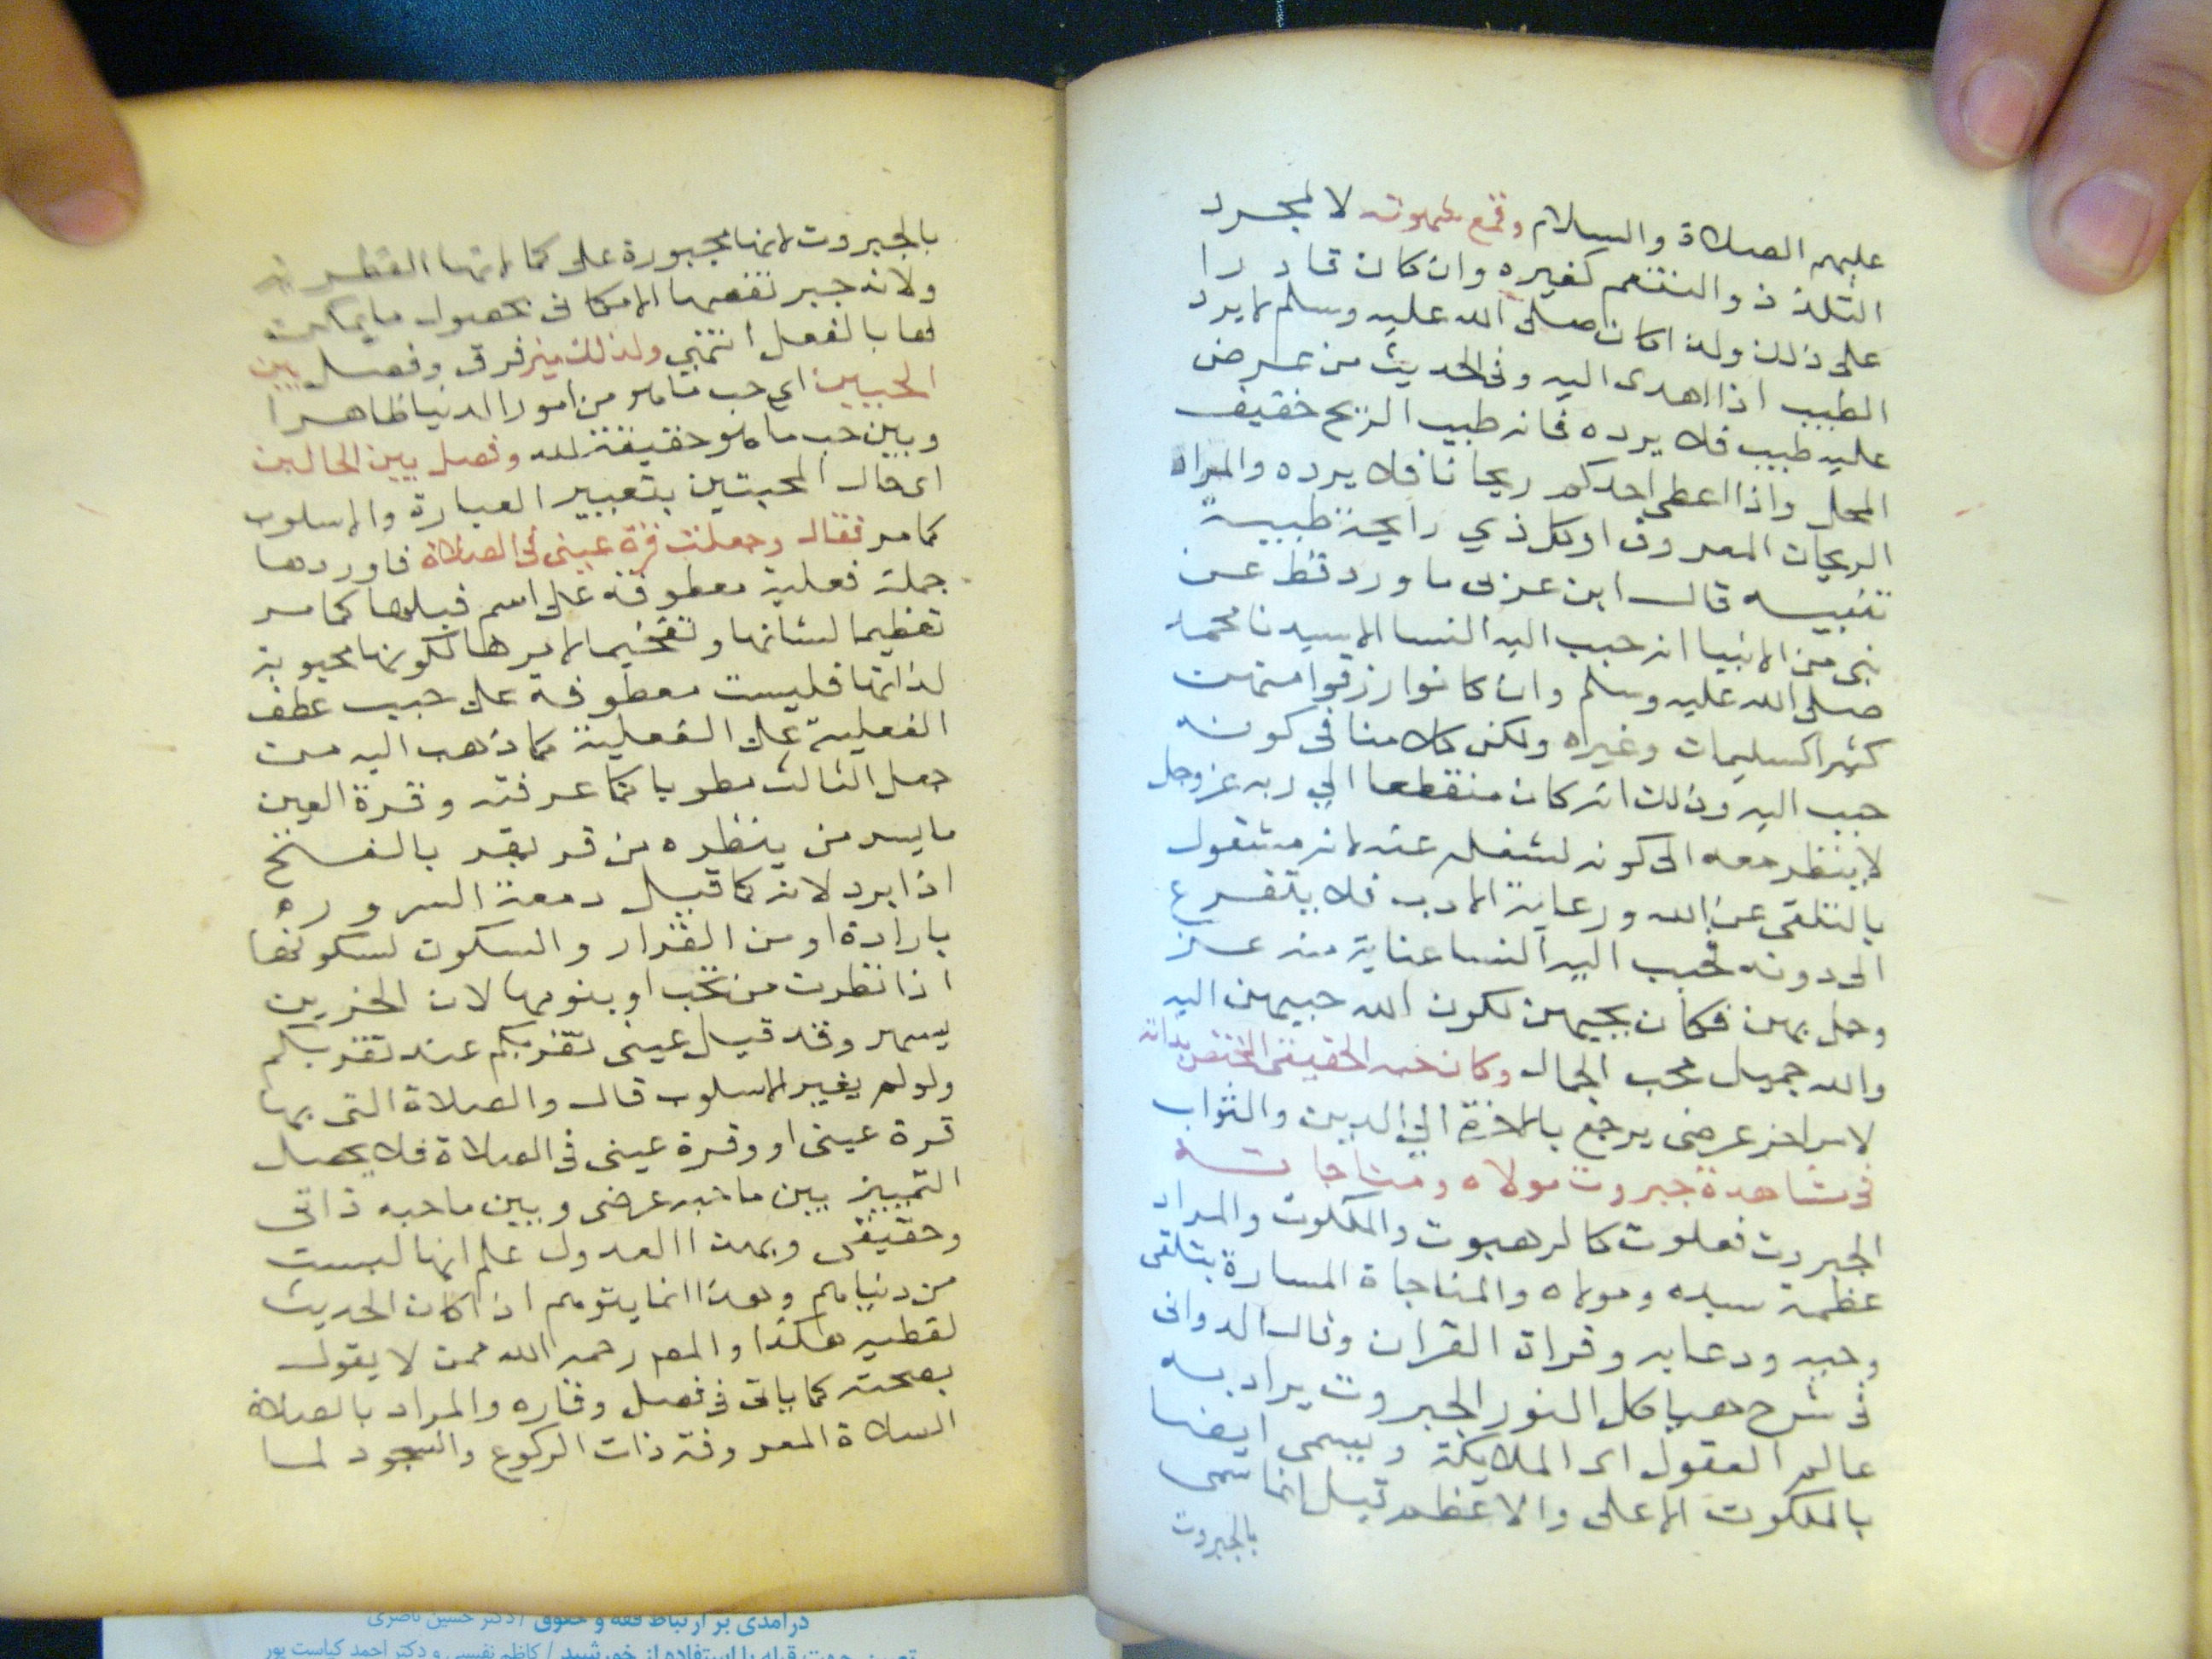 عليهم الصلاة والسلام وقمع شهوته لا لمجرد
التلذذ والتنعم كغيره وان كان قادرا
على ذلك ولذا كان صلى الله عليه وسلم لا يرد
الطيب اذا اهدى اليه وفى الحديث من عرض
عليه طيب فلا يرده فانه طيب الريح خفيف
المحل واذا اعطى احدكم ريحانا فلا يرده والمراد
الريحان المعروف او كل ذي رايحة طيبة
تنبيه قال ابن عربى ما ورد قط عن
نبى من الانبيا انه حبب اليه النسا الا سيدنا محمد
صلى الله عليه وسلم وان كانوا رزقوا منهن
كثيرا كسليمان وغيره ولكن كلامنا فى كونه
حبب اليه وذلك انه كان منقطعا الي ربه عز وجل
لا ينظر معه الى كونه لشغله عنه لانه مشغول
بالتلقى عن الله ورعاية الادب فلا يتفرغ
الى دونه فحبب اليه النسا عناية منه عز
وجل بهن فكان يحبهن لكون الله حببهن اليه
والله جميل يحب الجمال وكان حبه الحقيقى المختص بذاته
لا مر اخر عرضى يرجع بالاخرة الي الدين والثواب
فى مشاهدة جبروت مولاه ومناجاته
الجبروت فعلوت كالرهبوت والملكوت والمراد
عظمة سيده ومولاه والمناجاة المسارة بتلقى
وحيه ودعايه وقراة القران وقال الدوانى
فى شرح هياكل النور الجبروت يراد به
عالم العقول اى الملايكة ويسمى ايضا
بالملكوت الاعلى والاعظم قيل انما سمى
بالجبروت
بالجبروت لانها مجبورة على كمالاتها الفطرية
ولانه جبر نقصها الامكانى بحصول ما يمكن
لها بالفعل انتهي ولذلك ميز فرق وفصل بين
الحبين اي حب ما هو من امور الدنيا ظاهرا
وبين حب ما هو حقيقة لله وفصل بين الحالين
اى حال المحبتين بتغيير العبارة والاسلوب
كما مر فقال وجعلت قرة عينى فى الصلاة فاوردها
جملة فعلية معطوفة على اسم قبلها كما مر
تعظيما لشانها وتفخيما لامرها لكونها محبوبة
لذاتها فليست معطوفة على حبب عطف
الفعلية على الفعلية كما ذهب اليه من
جعل الثالث مطويا كما عرفته وقرة العين
ما يسر من ينظره من قر يقر بالفتح
اذا برد لانه كما قيل دمعة السرور
باردة او من القرار والسكون لسكونها
اذا نظرت من تحب او بنومها لان الحزين
يسهر وقد قيل عينى تقر بكم عند تقربكم
ولو لم يغير الاسلوب قال والصلاة التى بها
قرة عينى او وقرة عينى فى الصلاة فلا يحصل
التمييز بين ما حبه عرضى وبين ما حبه ذاتى
وحقيقى وبهذا العدول علم انها ليست
من دنياهم وهذا انما يتوهم اذا كان الحديث
لفظه هكذا والمص رحمه الله ممن لا يقول
بصحته كما ياتى فى فصل وقاره والمراد بالصلاة
الصلاة المعروفة ذات الركوع والسجود لما
درآمدی بر ارتباط فقه و حقوق / دکتر حسین ناصری
تعیین جهت قبله با استفاده از خورشید / کاظم نفیسی و دکتر احمد کیاست پور